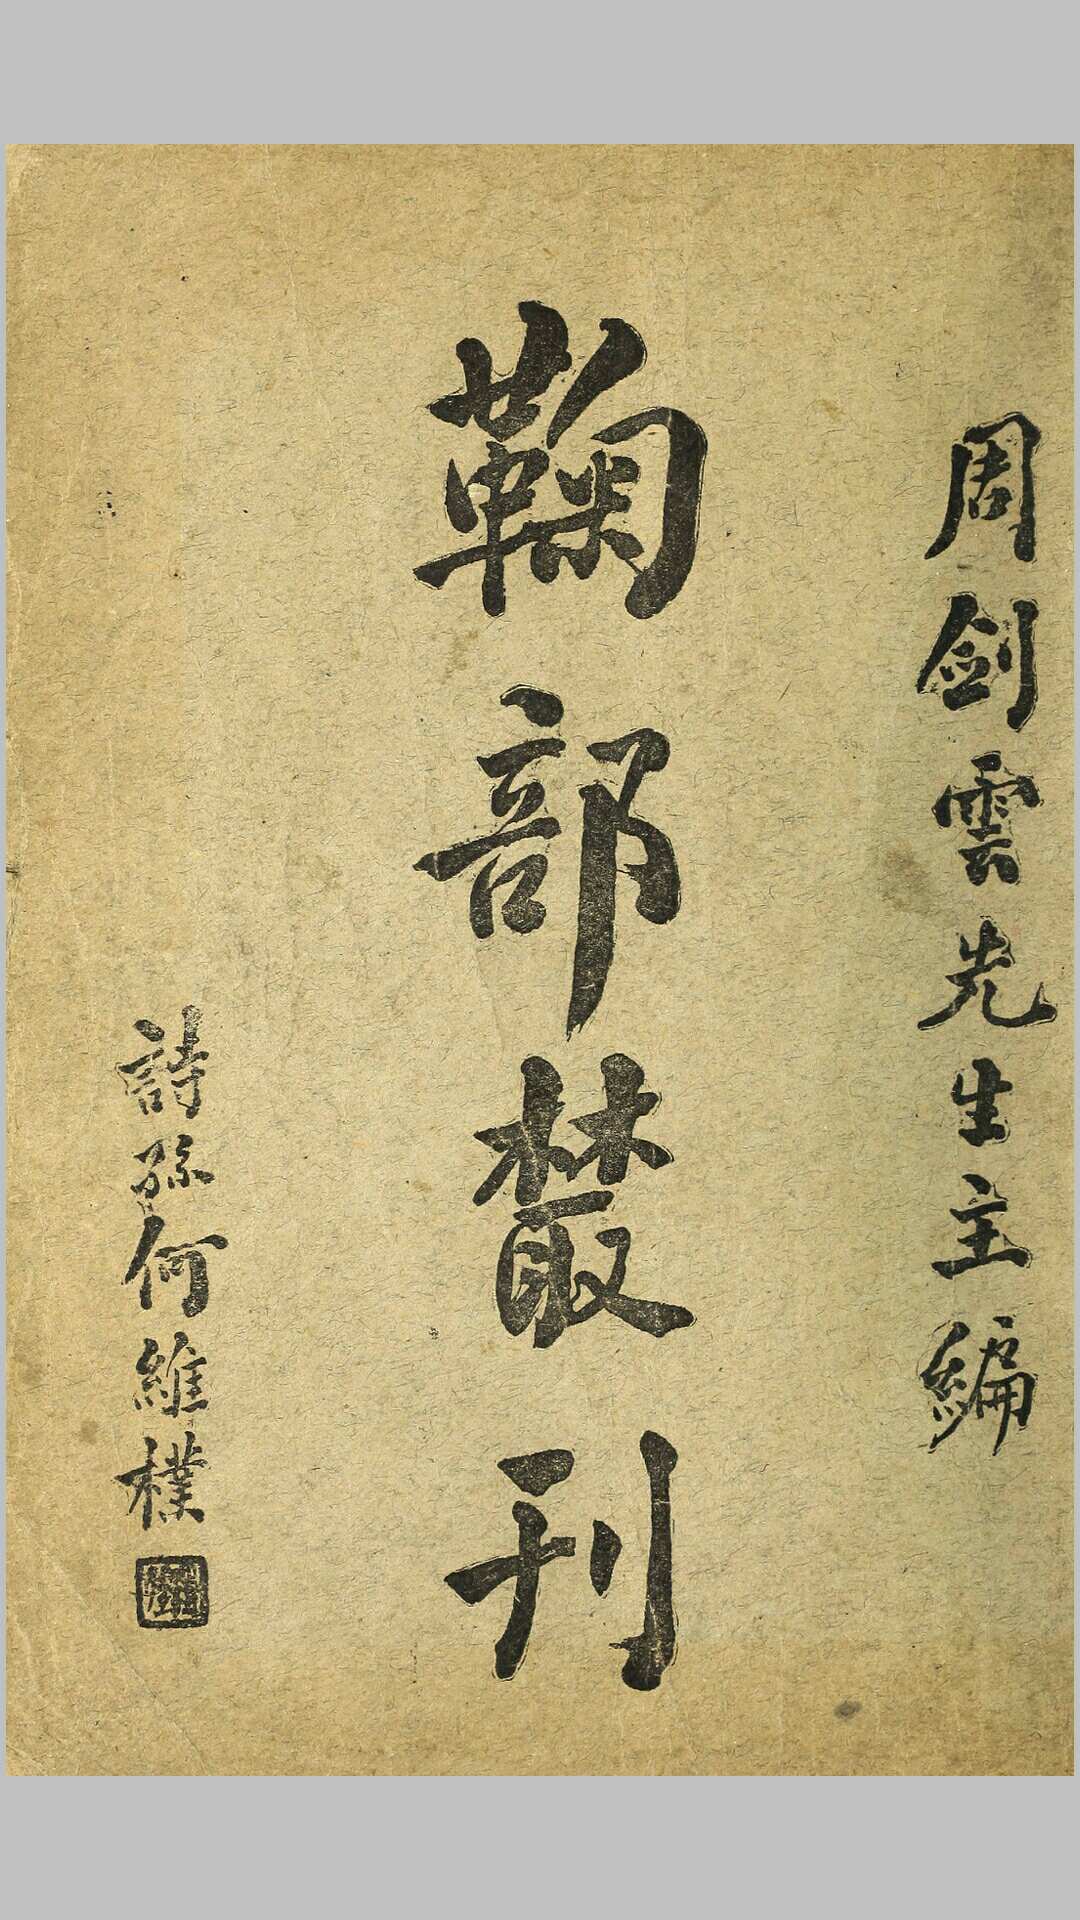 周劍雲先生主編
鞠部叢刊
詩孫何維樸